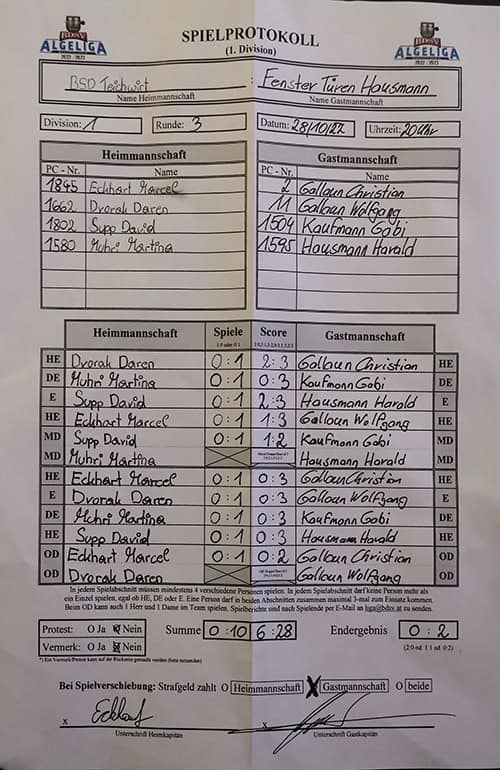 BDSV
ALGELIGA
2022 / 2023
SPIELPROTOKOLL
(1. Division)
BDSV
ALGELIGA
2022 / 2023
BSD Teichwirt : Fenster Türen Hausmann
Name Heimmannschaft Name Gastmannschaft
Division: 1 Runde: 3 Datum: 28/10/22 Uhrzeit: 20 Uhr
Heimmannschaft Gastmannschaft
PC - Nr. Name PC - Nr. Name
1845 Eckhart Marcel 2 Galloun Christian
1662 Dvorak Daren 11 Galloun Wolfgang
1802 Supp David 1504 Kaufmann Gabi
1580 Muhri Martina 1595 Hausmann Harald
Heimmannschaft Spiele Score Gastmannschaft
1:0 oder 0:1
HE Dvorak Daren 0:1 2:3 Galloun Christian HE
DE Muhri Martina 0:1 0:3 Kaufmann Gabi DE
E Supp David 0:1 2:3 Hausmann Harald E
HE Eckhart Marcel 0:1 1:3 Galloun Wolfgang HE
MD Supp David 0:1 1:2 Kaufmann Gabi MD
MD Muhri Martina Hausmann Harald MD
HE Eckhart Marcel 0:1 0:3 Galloun Christian HE
E Dvorak Daren 0:1 0:3 Galloun Wolfgang E
DE Muhri Martina 0:1 0:3 Kaufmann Gabi DE
HE Supp David 0:1 0:3 Hausmann Harald HE
OD Eckhart Marcel 0:1 0:2 Galloun Christian OD
OD Dvorak Daren Galloun Wolfgang OD
In jedem Spielabschnitt müssen mindestens 4 verschiedene Personen spielen. In jedem Spielabschnitt darf keine Person mehr als
ein Einzel spielen, egal ob HE, DE oder E. Eine Person darf in beiden Abschnitten zusammen maximal 3-mal zum Einsatz kommen.
Beim OD kann auch 1 Herr und 1 Dame im Team spielen. Spielberichte sind nach Spielende per E-Mail an liga@bdsv.at zu senden.
Protest: O Ja Nein Summe 0:10 6:28 Endergebnis 0:2
Vermerk: O Ja Nein (2:0 od. 1:1 od. 0:2)
*) Ein Vermerk/Protest kann auf der Rückseite gemacht werden (bitte umranden)
Bei Spielverschiebung: Strafgeld zahlt O Heimmannschaft X Gastmannschaft O beide
x x
Unterschrift Heimkapitän Unterschrift Gastkapitän